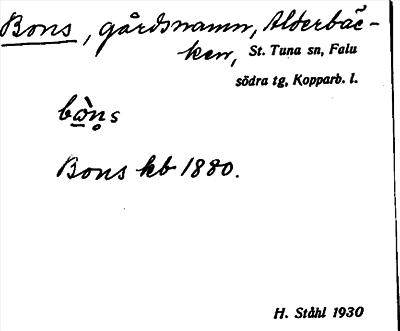 Bons, gårdsnamn, Alderbäc-
ken, St. Tuna sn, Falu
södra tg, Kopparb. l.
bòn̥s
Bons kb 1880.
H. Ståhl 1930